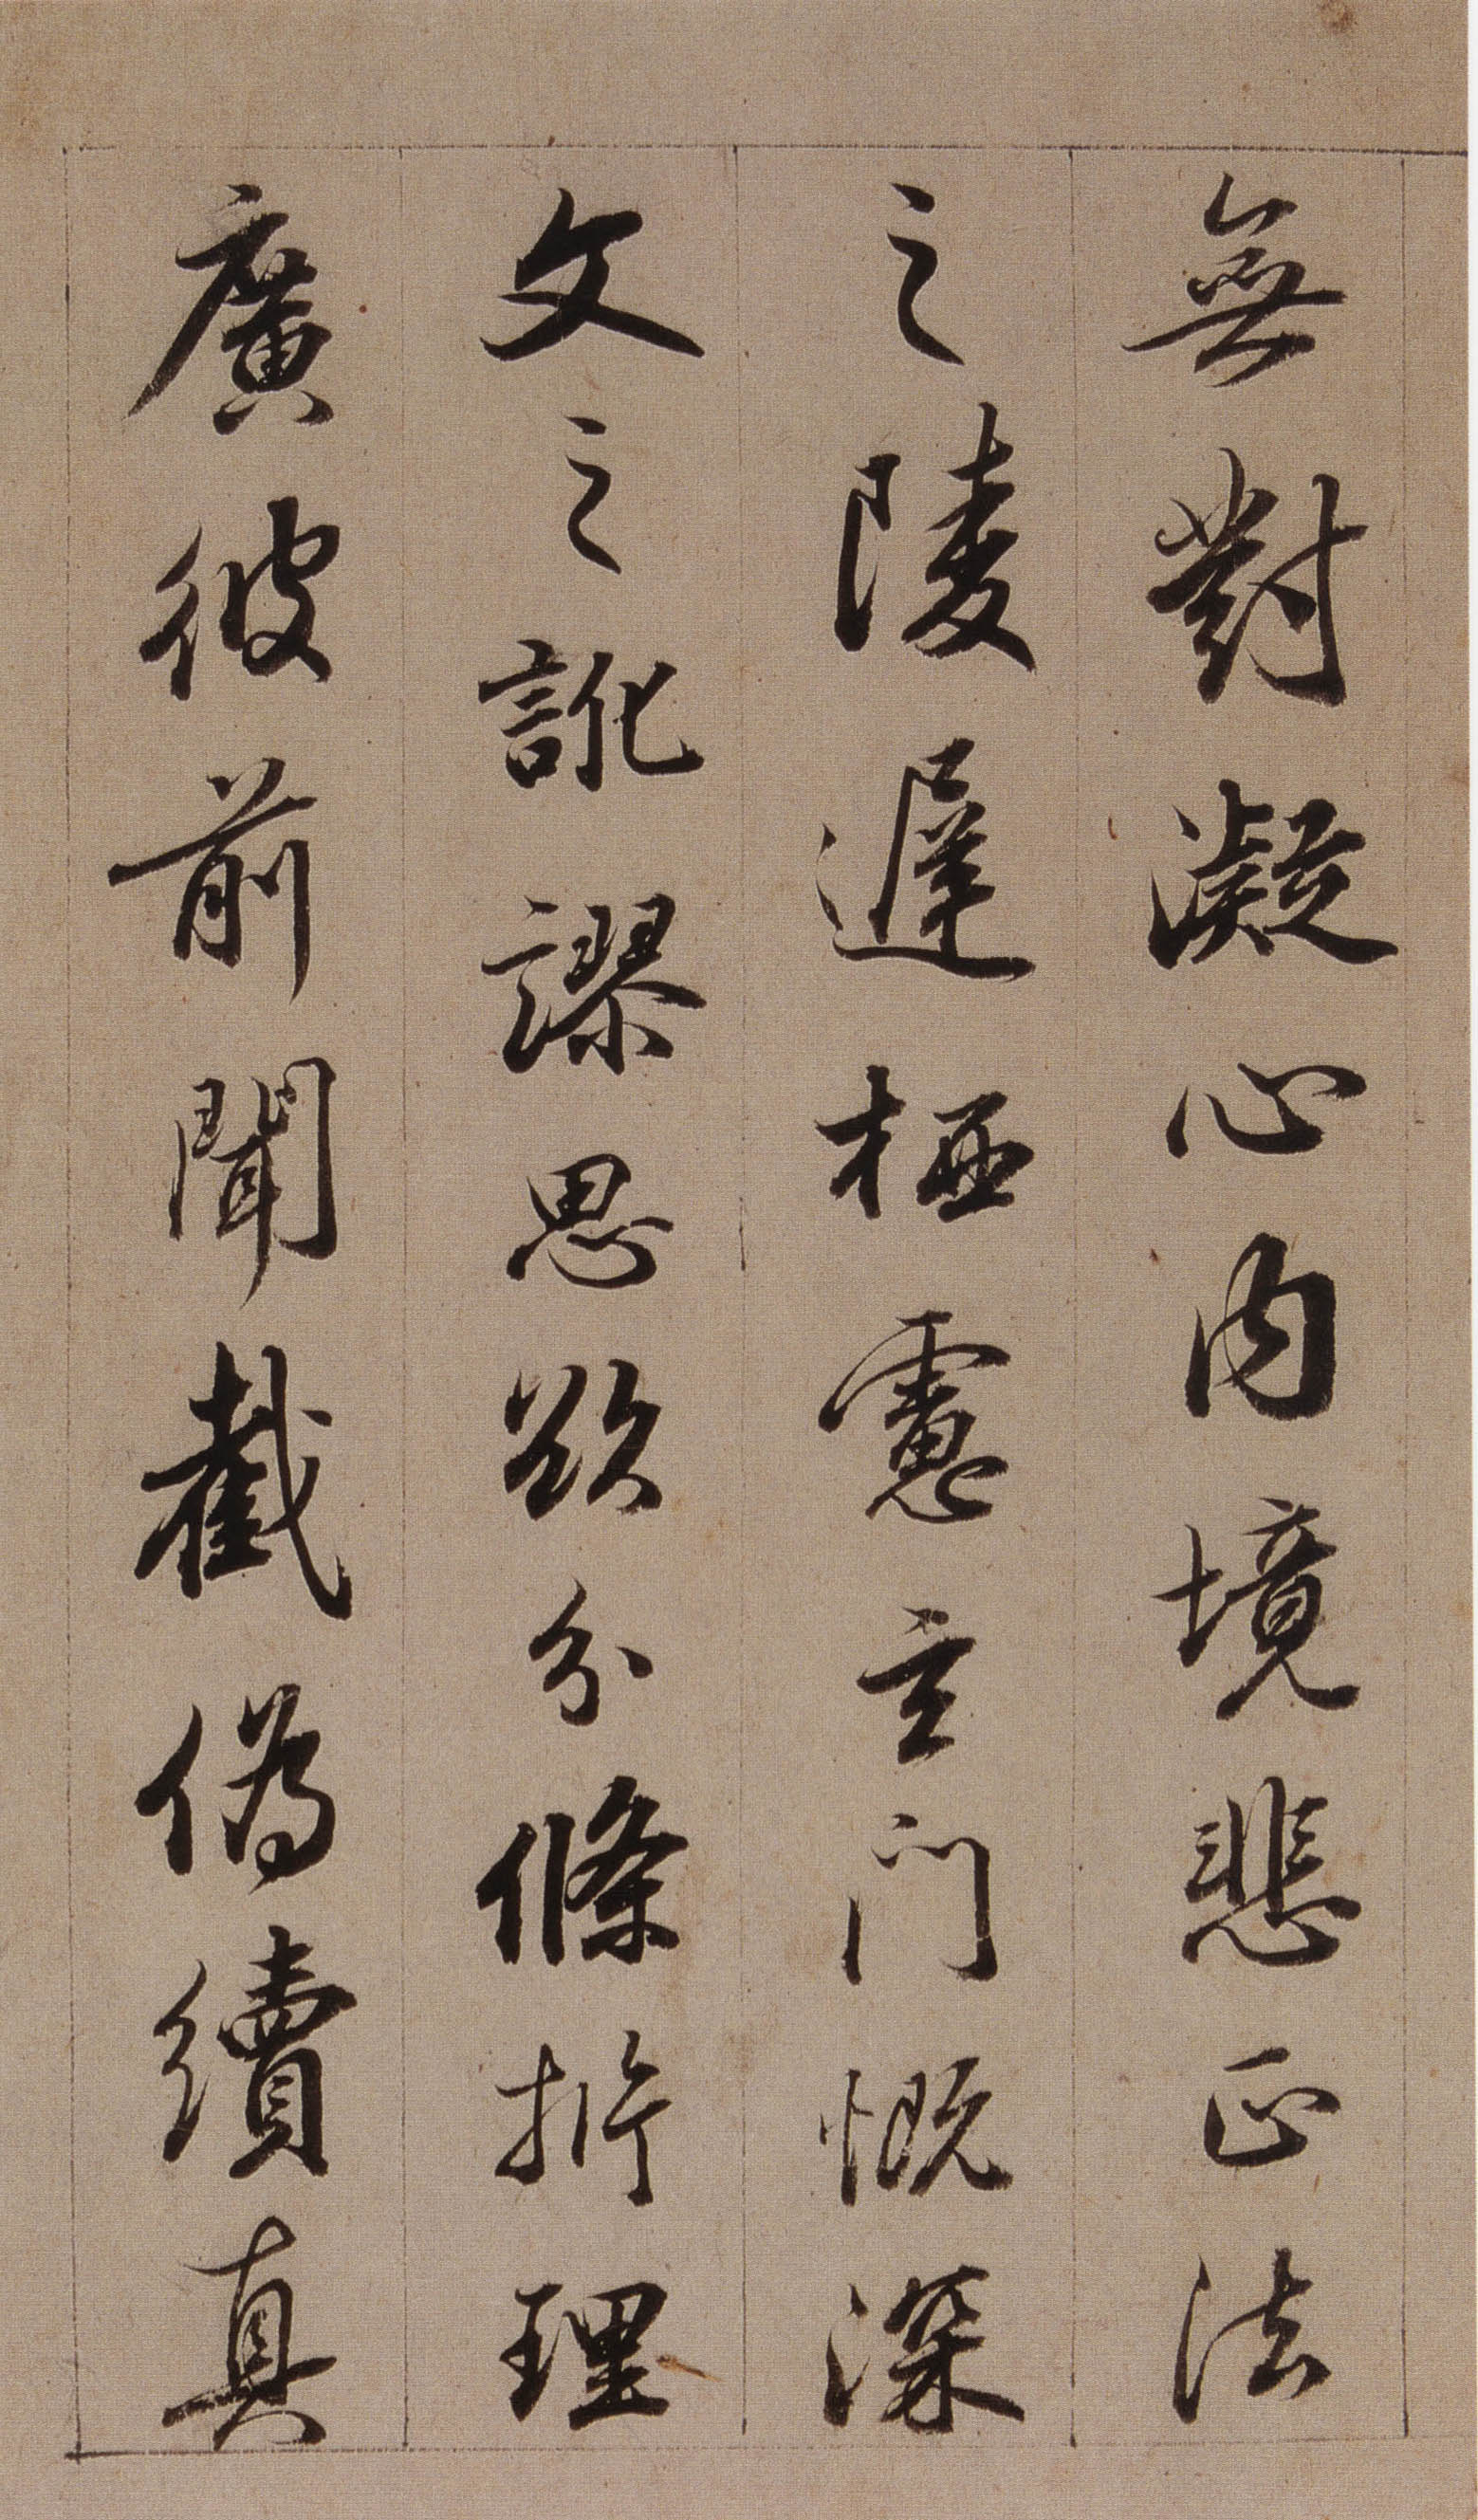 無對凝心内境悲正法
之陵遲栖慮玄門慨深
文之訛謬思欲分條析理
廣彼前聞截偽續真